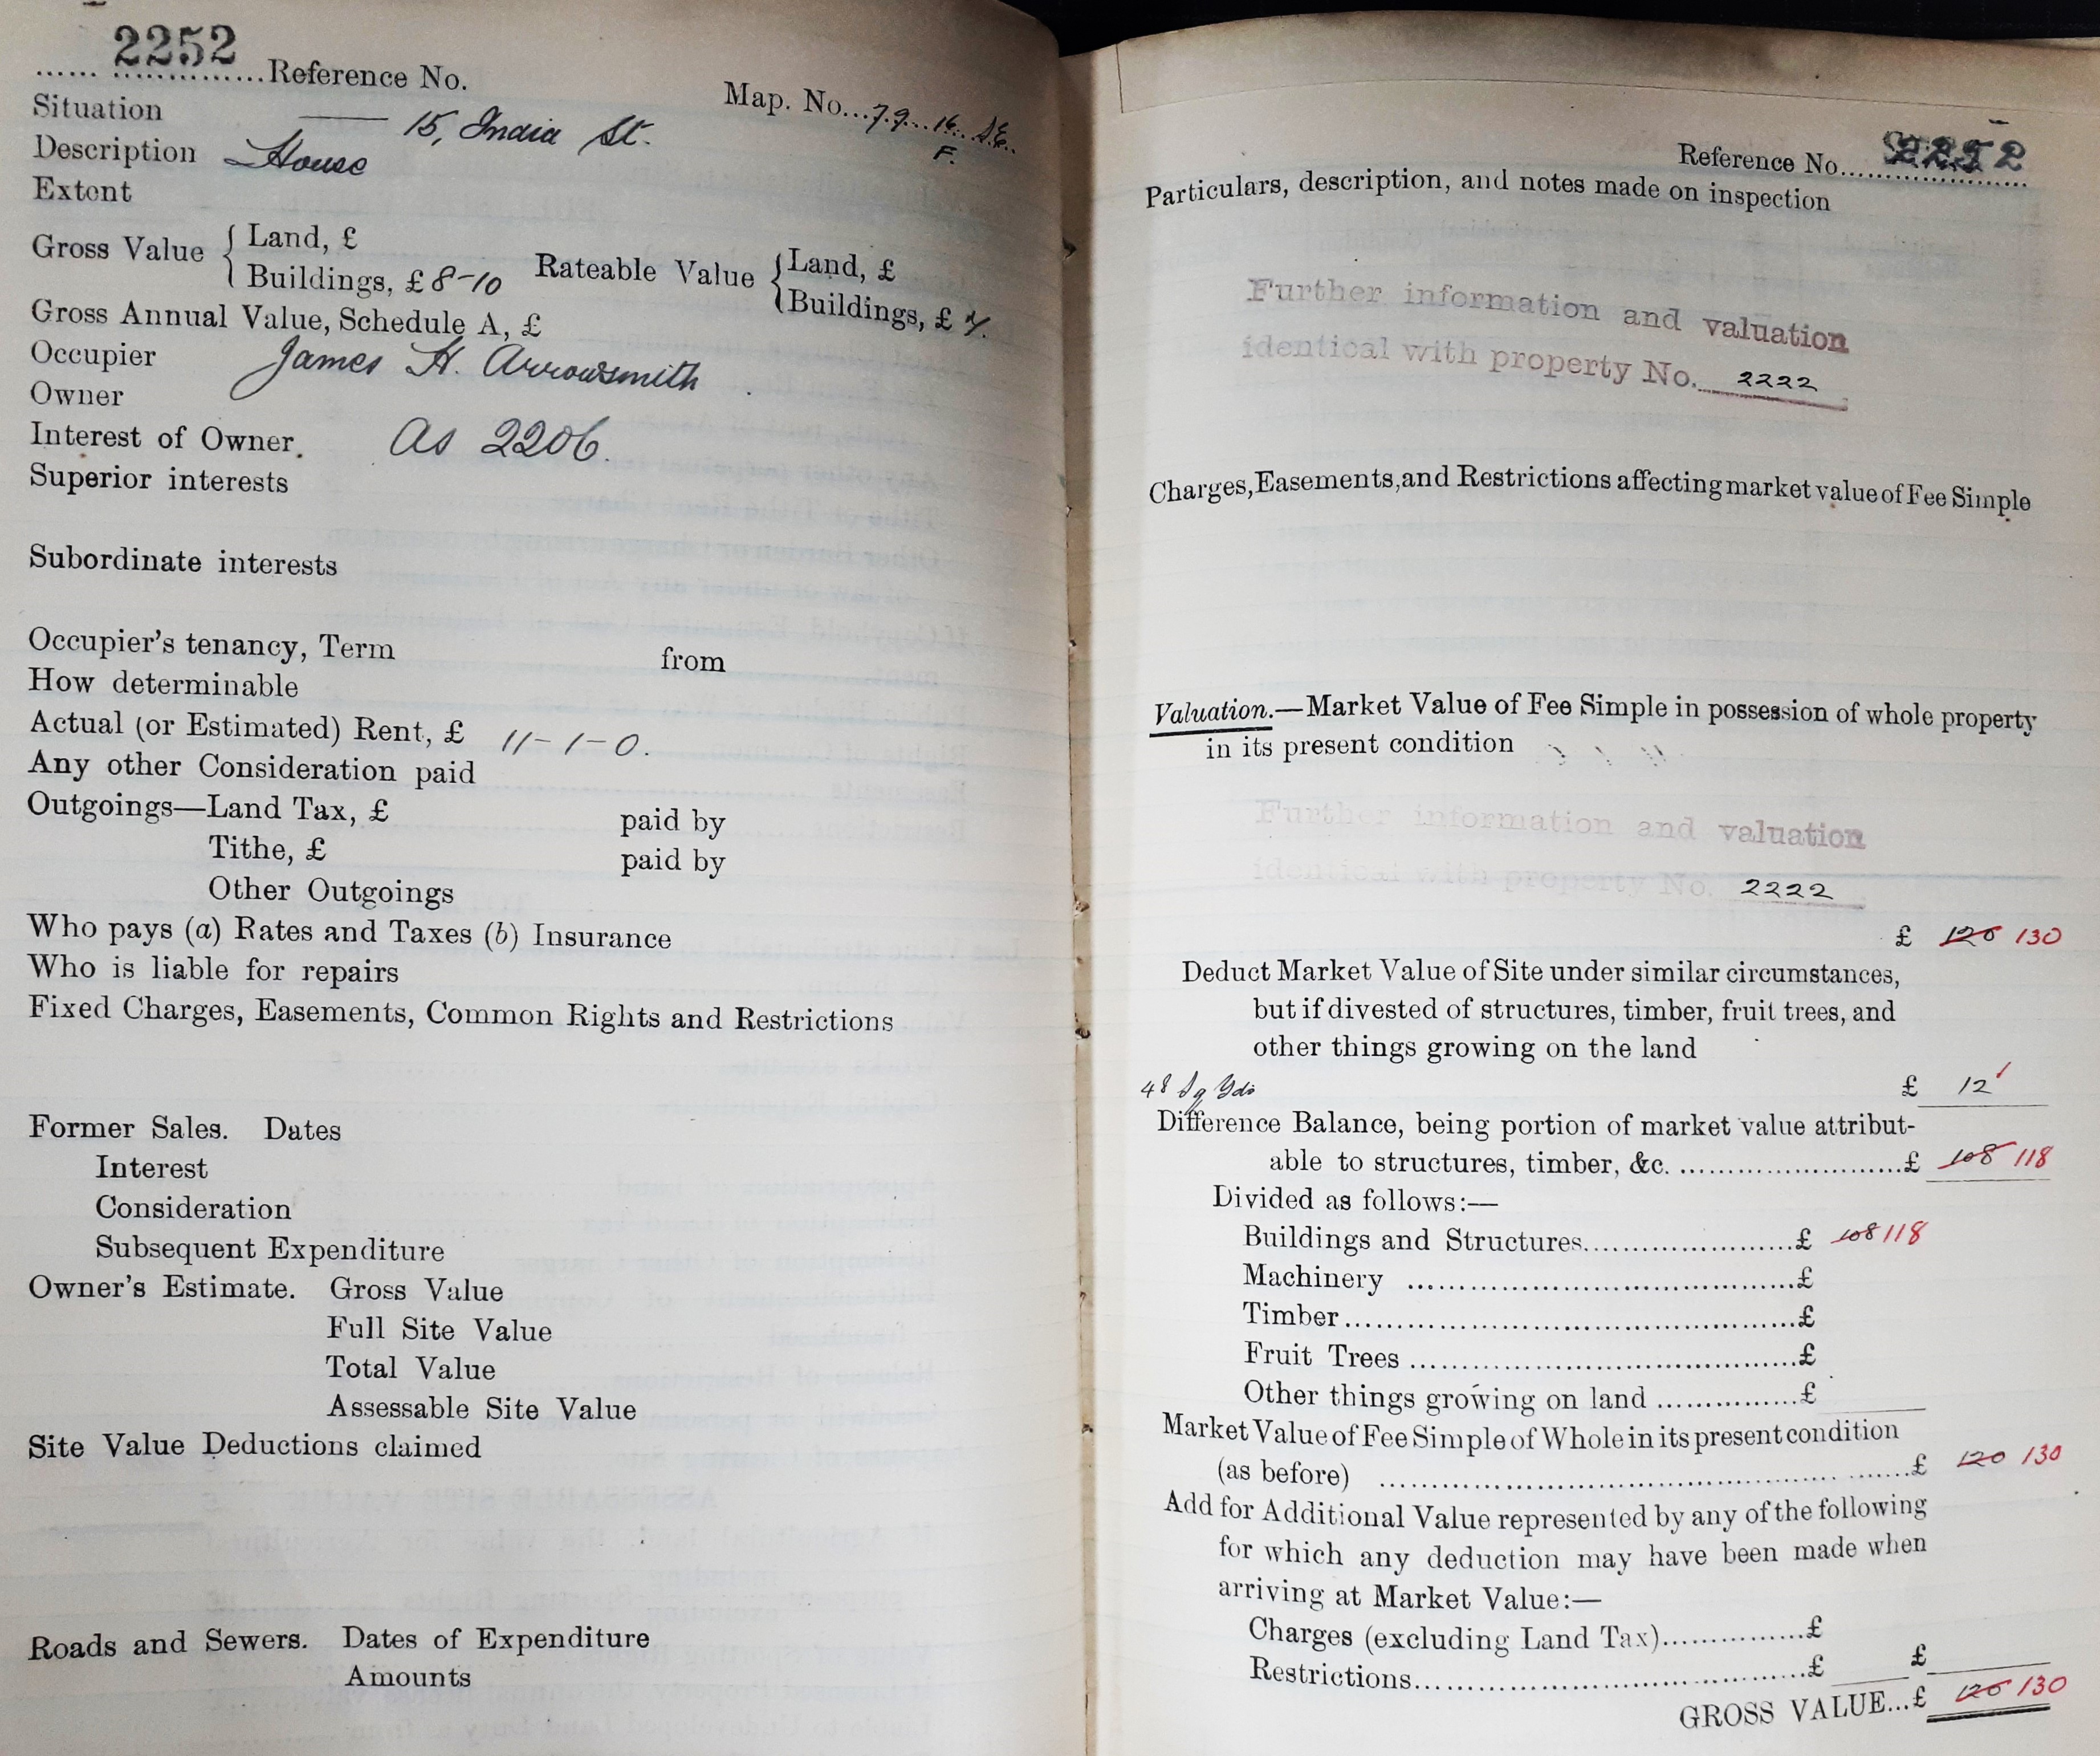 2252
Reference No.
Map. No. 79. 16. S.E.
F.
Situation 15, India St.
Description House
Extent
Gross Value { Land, £
Buildings, £ 8-10
Rateable Value { Land, £
Buildings, £
Gross Annual Value, Schedule A, £
Occupier James H. Arrowsmith
Owner
Interest of Owner. As 2206.
Superior interests
Subordinate interests
Occupier's tenancy, Term from
How determinable
Actual (or Estimated) Rent, £ 11-1-0.
Any other Consideration paid
Outgoings—Land Tax, £ paid by
Tithe, £ paid by
Other Outgoings
Who pays (a) Rates and Taxes (b) Insurance
Who is liable for repairs
Fixed Charges, Easements, Common Rights and Restrictions
Former Sales. Dates
Interest
Consideration
Subsequent Expenditure
Owner's Estimate. Gross Value
Full Site Value
Total Value
Assessable Site Value
Site Value Deductions claimed
Roads and Sewers. Dates of Expenditure
Amounts
Reference No. 2252
Particulars, description, and notes made on inspection
Further information and valuation
identical with property No. 2222
Charges, Easements, and Restrictions affecting market value of Fee Simple
Valuation.—Market Value of Fee Simple in possession of whole property
in its present condition
Further information and valuation
identical with property No. 2222
£ 120 130
Deduct Market Value of Site under similar circumstances,
but if divested of structures, timber, fruit trees, and
other things growing on the land
48 Sq Yds £ 12
Difference Balance, being portion of market value attribut-
able to structures, timber, &c. £ 108 118
Divided as follows:—
Buildings and Structures £ 108 118
Machinery £
Timber £
Fruit Trees £
Other things growing on land £
Market Value of Fee Simple of Whole in its present condition
(as before) £ 120 130
Add for Additional Value represented by any of the following
for which any deduction may have been made when
arriving at Market Value:—
Charges (excluding Land Tax) £
Restrictions £ £
GROSS VALUE...£ 120 130